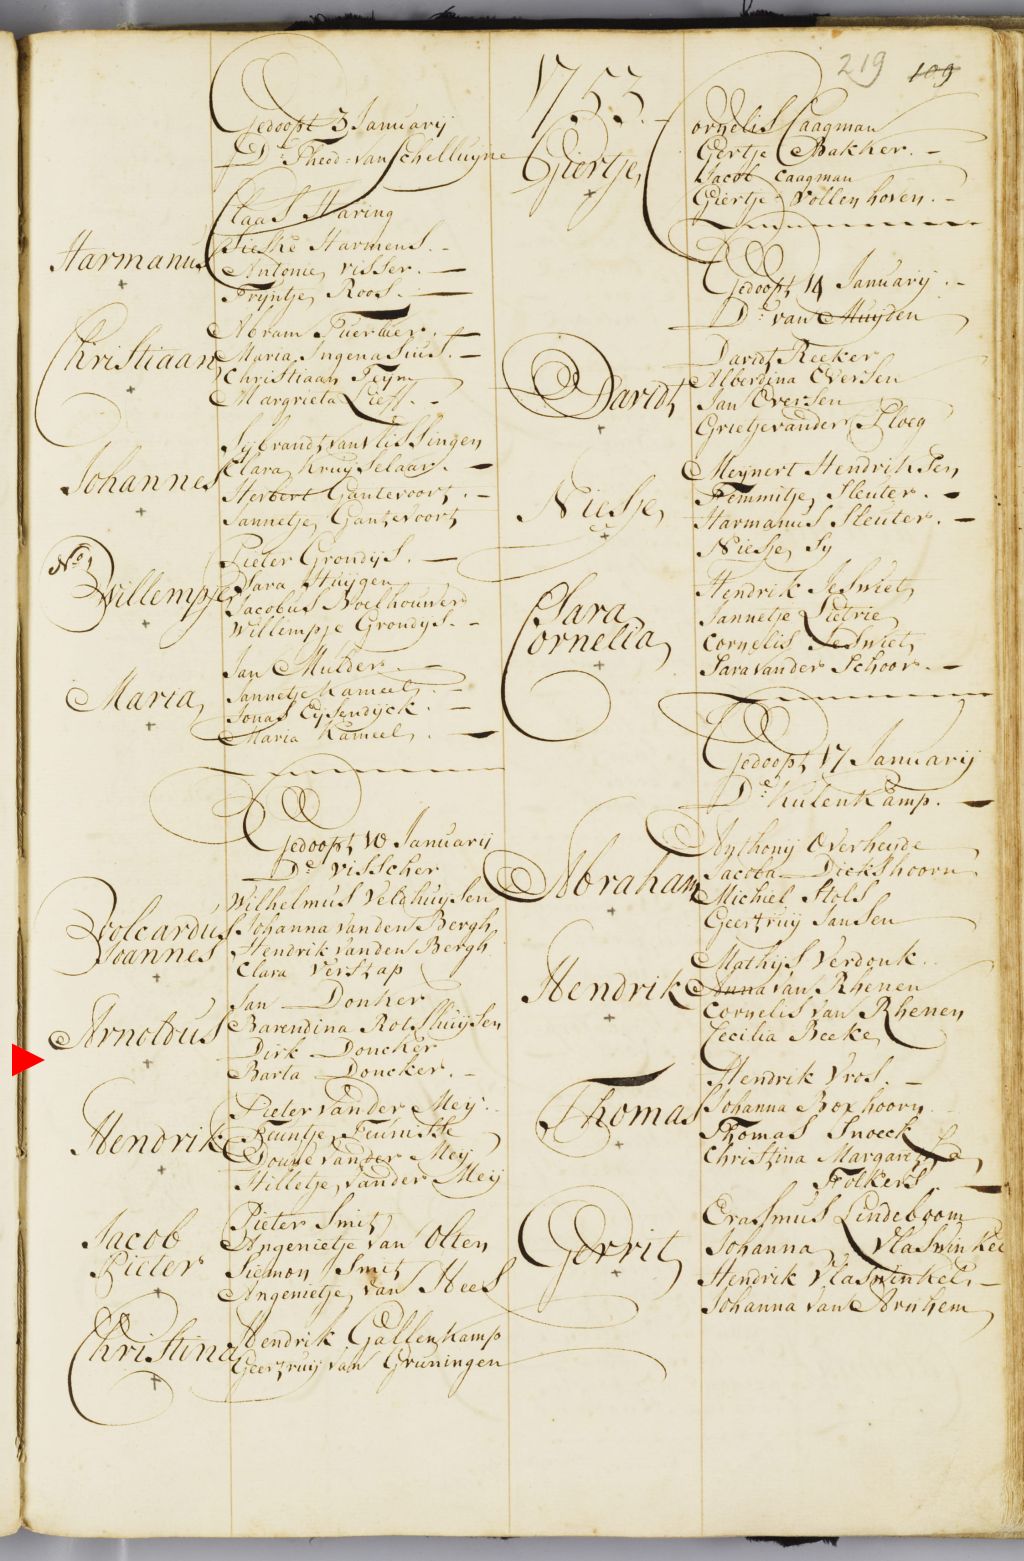 219 109
Gedoopt 3 Januarij
Ds Theod: van Schelluijne
Harmanus
Claas Haring
Antonie Visser.
Trijntje Roos.
Christiaan
Abram
Maria Ingenasius.
Christiaan Feijn
Margrieta Lieff.
Johannes
Sijbrandt van Vlissingen
Clara Kruijselaar.
Herbert Gantevoort.
Jannetje Gantevoort
No
Willempje
Pieter Grondijs.
Sara Huijgen
Jacobus Noelhouwer
Willempje Grondijs.
Maria
Jan Mulder.
Jannetje Kameel.
Jonas Eijsendijck.
Maria Kameel.
Gedoopt 10 Januarij
De Visscher
Volcardus
Joannes
Wilhelmus Veldhuijsen
Johanna van den Bergh
Hendrik van den Bergh
Clara Verstap
Arnoldus
Jan Donker
Barendina Rotshuijsen
Dirk Doncker
Barta Doncker.
Hendrik
Pieter van der Meij.
Douwe van der Meij
Hilletje van der Meij
Jacob
Pieter
Pieter Smit
Angenietje van Olten
Siemon Smit
Angenietje van Hees
Christina
Hendrik Gallenkamp
Geertruij van Gruningen
1753.
Giertje
Cornelis Caagman
Gertje Bakker.
Jacob Caagman
Giertje Vollenhoven.
Gedoopt 14 Januarij.
Ds van Muijden
Davidt
Davidt Reeker
Alberdina Oversen
Jan Oversen
Grietje vander Ploeg
Niesje
Meijnert Hendriksen
Femmitje Sleuter.
Harmanus Sleuter.
Niesje Sij
Sara
Cornelia
Hendrik JeSwiet
Jannetje Pietrie
Cornelis JeSwiet
Sara vander Schoor.
Gedoopt 17 Januarij
De Kulenkamp.
Abraham
Anthonij Overheijde
Jacoba Dickshoorn
Michiel Stols
Geertruij Jansen
Hendrik
Mathijs Verdonk.
Anna van Rhenen
Cornelis van Rhenen
Cecilia Beeke
Thomas
Hendrik Vros.
Johanna Boxhoorn
Thomas Snoeck
Christina Margareta
Folkers.
Gerrit
Erasmus Lindeboom
Johanna Vlaswinkel
Hendrik Vlaswinkel.
Johanna van Arnhem